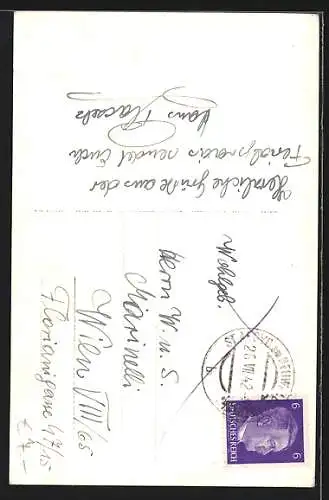 Herzliche Grüße aus der
sendet Euch
Hans
Wohlgeb.
Herrn W. u. S.
Marinelli
Wien VIII/65
Florianigasse 47/15
26.VII.42
b
6
6
DEUTSCHES REICH